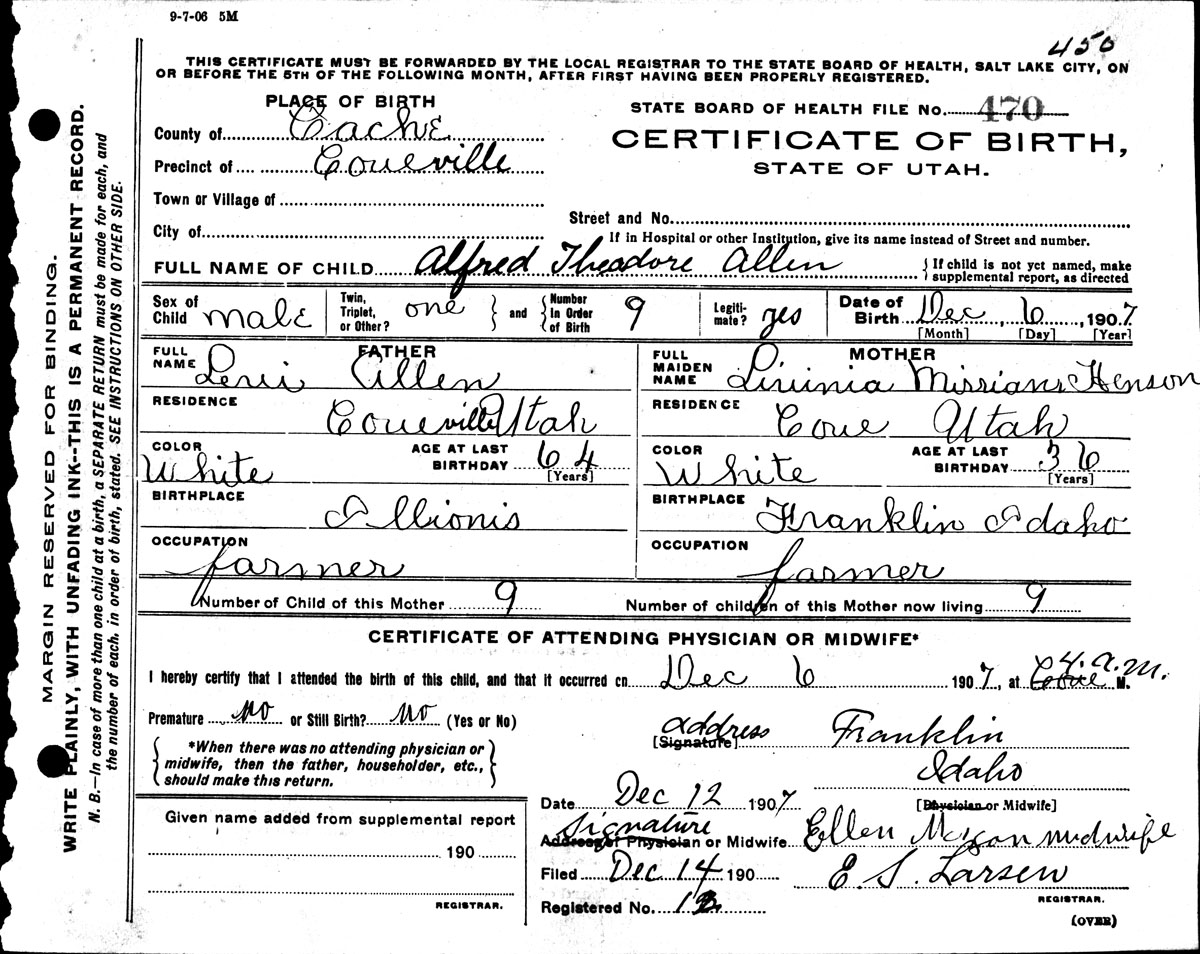 9-7-06 5M
450
THIS CERTIFICATE MUST BE FORWARDED BY THE LOCAL REGISTRAR TO THE STATE BOARD OF HEALTH, SALT LAKE CITY, ON
OR BEFORE THE 5TH OF THE FOLLOWING MONTH, AFTER FIRST HAVING BEEN PROPERLY REGISTERED.
PLACE OF BIRTH
County of Cache
Precinct of Coveville
Town or Village of
City of
STATE BOARD OF HEALTH FILE No. 470
CERTIFICATE OF BIRTH,
STATE OF UTAH.
Street and No.
If in Hospital or other Institution, give its name instead of Street and number.
FULL NAME OF CHILD Alfred Theodore Allen
If child is not yet named, make
supplemental report, as directed
Sex of Child male
Twin, Triplet, or Other? one
and
Number In Order of Birth 9
Legiti-mate? yes
Date of Birth Dec 6, 1907
[Month] [Day] [Year]
FATHER
FULL NAME Levi Allen
RESIDENCE Coveville Utah
COLOR White
AGE AT LAST BIRTHDAY 64
[Years]
BIRTHPLACE Illionis
OCCUPATION farmer
MOTHER
FULL MAIDEN NAME Livinia Henson
RESIDENCE Cove Utah
COLOR White
AGE AT LAST BIRTHDAY 36
[Years]
BIRTHPLACE Franklin Idaho
OCCUPATION farmer
Number of Child of this Mother 9
Number of children of this Mother now living 9
CERTIFICATE OF ATTENDING PHYSICIAN OR MIDWIFE*
I hereby certify that I attended the birth of this child, and that it occurred on Dec 6 1907, at Cove 4. a. m. M.
Premature no or Still Birth? no (Yes or No)
*When there was no attending physician or
midwife, then the father, householder, etc.,
should make this return.
address
[Signature] Franklin
Idaho
[Physician or Midwife]
Date Dec 12 1907
Signature
Address of Physician or Midwife Ellen midwife
Filed Dec 14 190
E. S. Larsen
REGISTRAR.
Registered No.
(OVER)
Given name added from supplemental report
190
REGISTRAR.
MARGIN RESERVED FOR BINDING.
WRITE PLAINLY, WITH UNFADING INK--THIS IS A PERMANENT RECORD.
N. B.—In case of more than one child at a birth, a SEPARATE RETURN must be made for each, and
the number of each, in order of birth, stated. SEE INSTRUCTIONS ON OTHER SIDE.